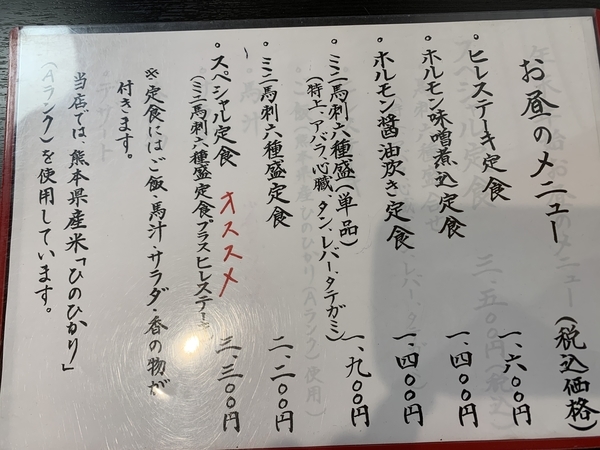 お昼のメニュー(税込価格)
・ヒレステーキ定食 一、六〇〇円
・ホルモン味噌煮込定食 一、四〇〇円
・ホルモン醤油炊き定食 一、四〇〇円
・ミニ馬刺六種盛(単品) 一、九〇〇円
(特上、アバラ、心臓、タン、レバー、タテガミ)
・ミニ馬刺六種盛定食 二、二〇〇円
・スペシャル定食 オススメ 三、三〇〇円
(ミニ馬刺六種盛定食プラスヒレステーキ
※定食にはご飯・馬汁・サラダ・香の物が
付きます。
当店では、熊本県産米「ひのひかり」
(Aランク)を使用しています。